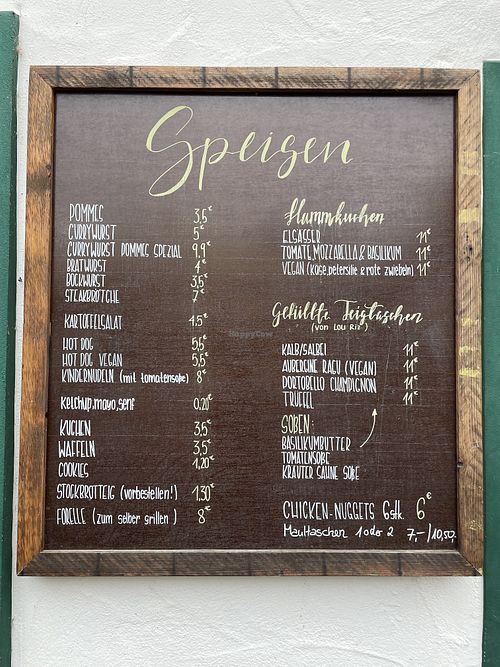 Speisen
POMMES 3,5€
CURRYWURST 5€
CURRYWURST POMMES SPEZIAL 9,9€
BRATWURST 4€
BOCKWURST 3,5€
STEAKBRÖTCHE 7€
KARTOFFELSALAT 4,5€
HOT DOG 5,5€
HOT DOG VEGAN 5,5€
KINDERNUDELN (mit tomatensoße) 8€
Ketchup, mayo, senf 0,20€
KUCHEN 3,5€
WAFFELN 3,5€
COOKIES 1,20€
STOCKBROTTEIG (vorbestellen!) 1,30€
FORELLE (zum selber grillen) 8€
Flammkuchen
ELSÄSSER 11€
TOMATE, MOZZARELLA, & BASILIKUM 11€
VEGAN (Käse, petersilie & rote zwiebeln) 11€
Gefüllte Teigtaschen
(von Lou Ris)
KALB/SALBEI 11€
AUBERGINE RAGU (VEGAN) 11€
PORTOBELLO CHAMPIGNON 11€
TRÜFFEL 11€
SOßEN:
BASILIKUMBUTTER
TOMATENSOßE
KRÄUTER SAHNE SOßE
CHICKEN-NUGGETS 6stk. 6€
Maultaschen 1 oder 2 7,-/10,50,-
HappyCow